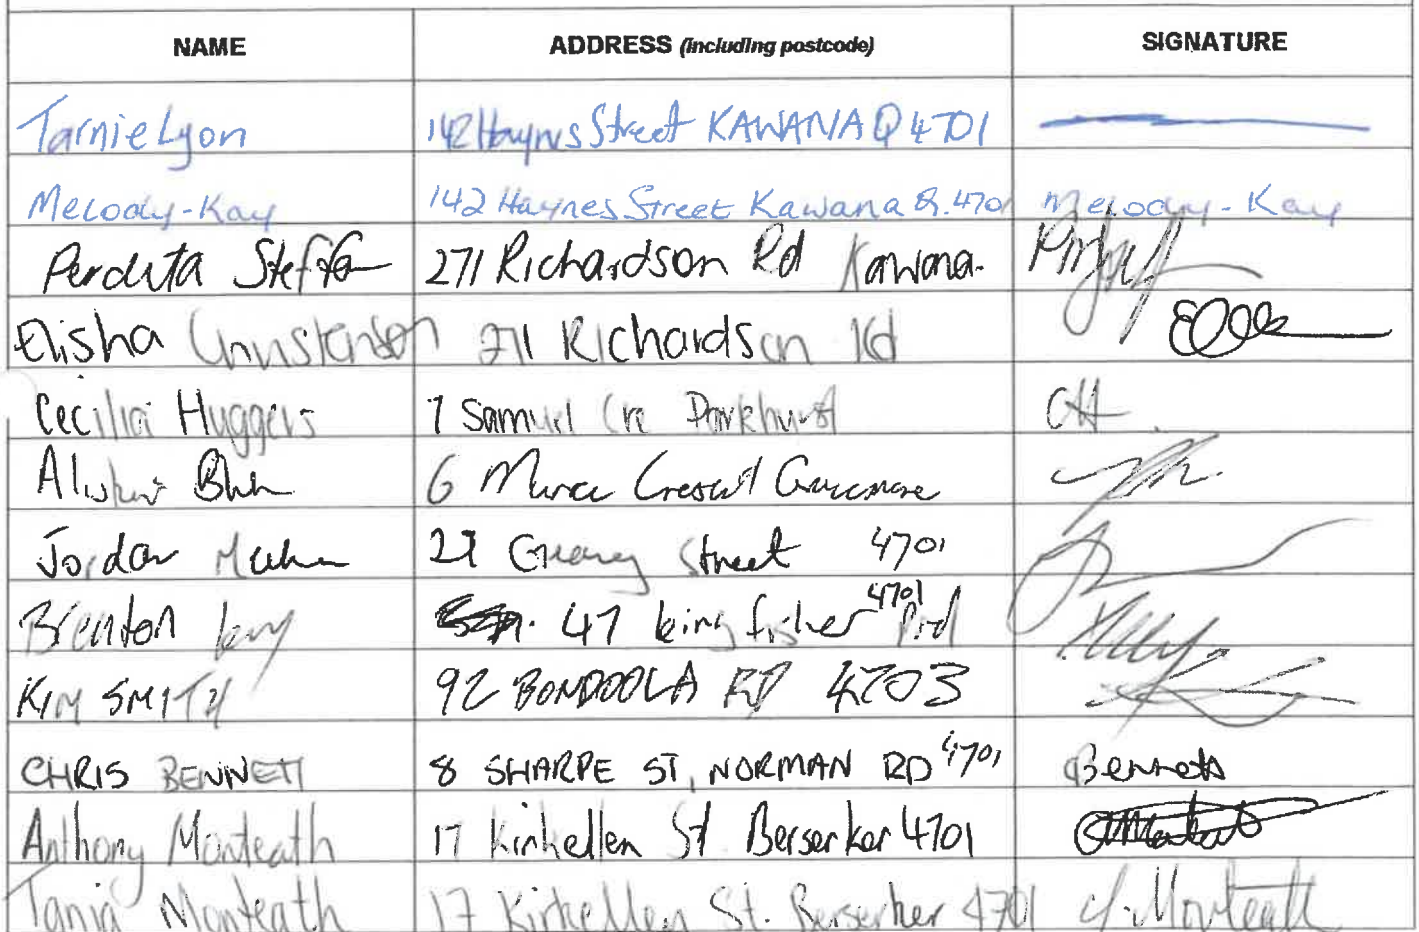 NAME ADDRESS (including postcode) SIGNATURE
Tarnie Lyon 142 Haynes Street KAWANA Q 4701
Melody-Kay 142 Haynes Street Kawana Q. 4701 Melody-Kay
Perduta 271 Richardson Rd Kawana.
Elisha 271 Richardson Rd
Cecilia Huggers 7 Samuel Cre Parkhurst CH
6 Crescent
Jordan Street 4701
Brenton 47 kingfisher 4701
KIM SMITH 92 BONDOOLA RD 4703
CHRIS BENNETT 8 SHARPE ST, NORMAN RD 4701 Bennett
Anthony Monteath 17 Kirkellen St Berserker 4701
Tania Monteath 17 Kirkellen St. Berserker 4701 Monteath